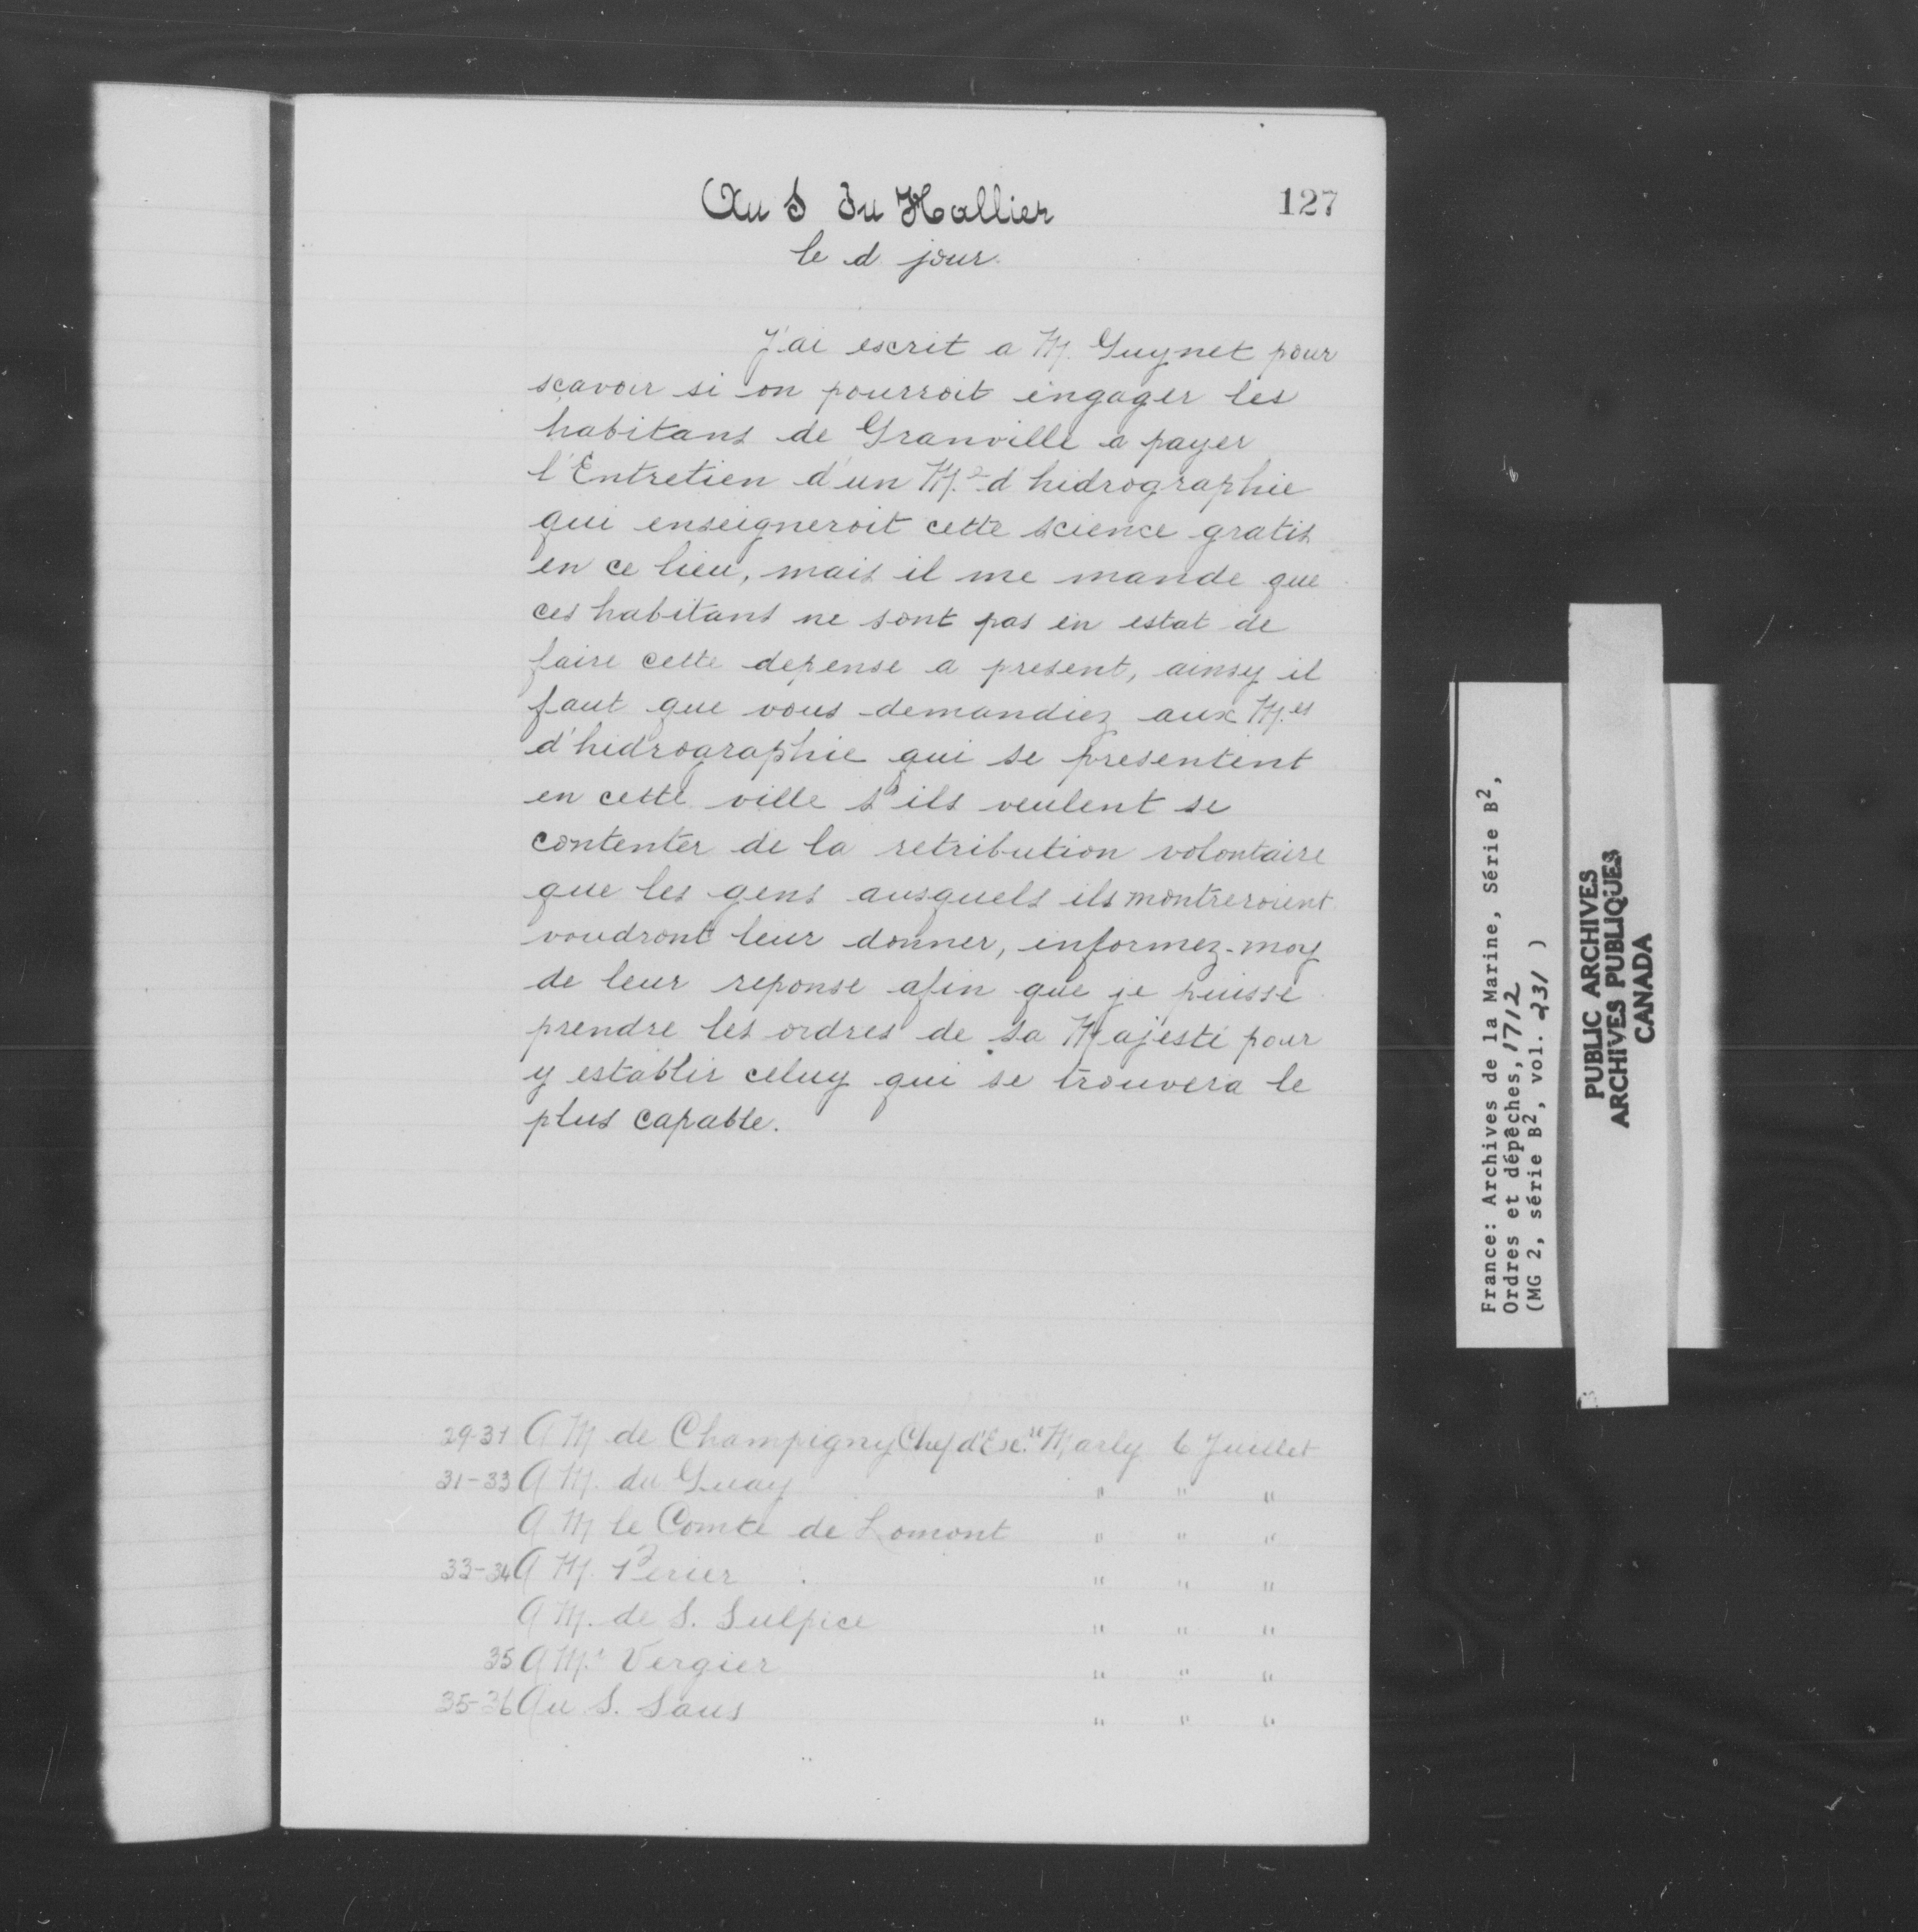 127
Au S du Hallier
le d jour.
J'ai escrit a M. Guynet pour
sçavoir si on pourroit engager les
habitans de Granville a payer
l'Entretien d'un M.e d'hidrographie
qui enseigneroit cette science gratis
en ce lieu, mais il me mande que
ces habitans ne sont pas en estat de
faire cette depense a present, ainsy il
faut que vous demandiez aux M.es
d'hidrographie qui se presentent
en cette ville s'ils veulent se
contenter de la retribution volontaire
que les gens ausquels ils montreroient
voudront leur donner, informez-moy
de leur reponse afin que je puisse
prendre les ordres de sa Majesté pour
y establir celuy qui se trouvera le
plus capable.
29-31 A M de Champigny Chef d'Esc.re Marly 6 Juillet
31-33 A M. du Guay " " "
A M le Comte de Lomont " " "
33-34 A M. Perier " " "
A M. de S. Sulpice " " "
35 A M.r Vergier " " "
35-36 Au S. Saus " " "
France: Archives de la Marine, Série B2,
Ordres et dépêches, 1712
(MG 2, série B2, vol. 231 )
PUBLIC ARCHIVES
ARCHIVES PUBLIQUES
CANADA